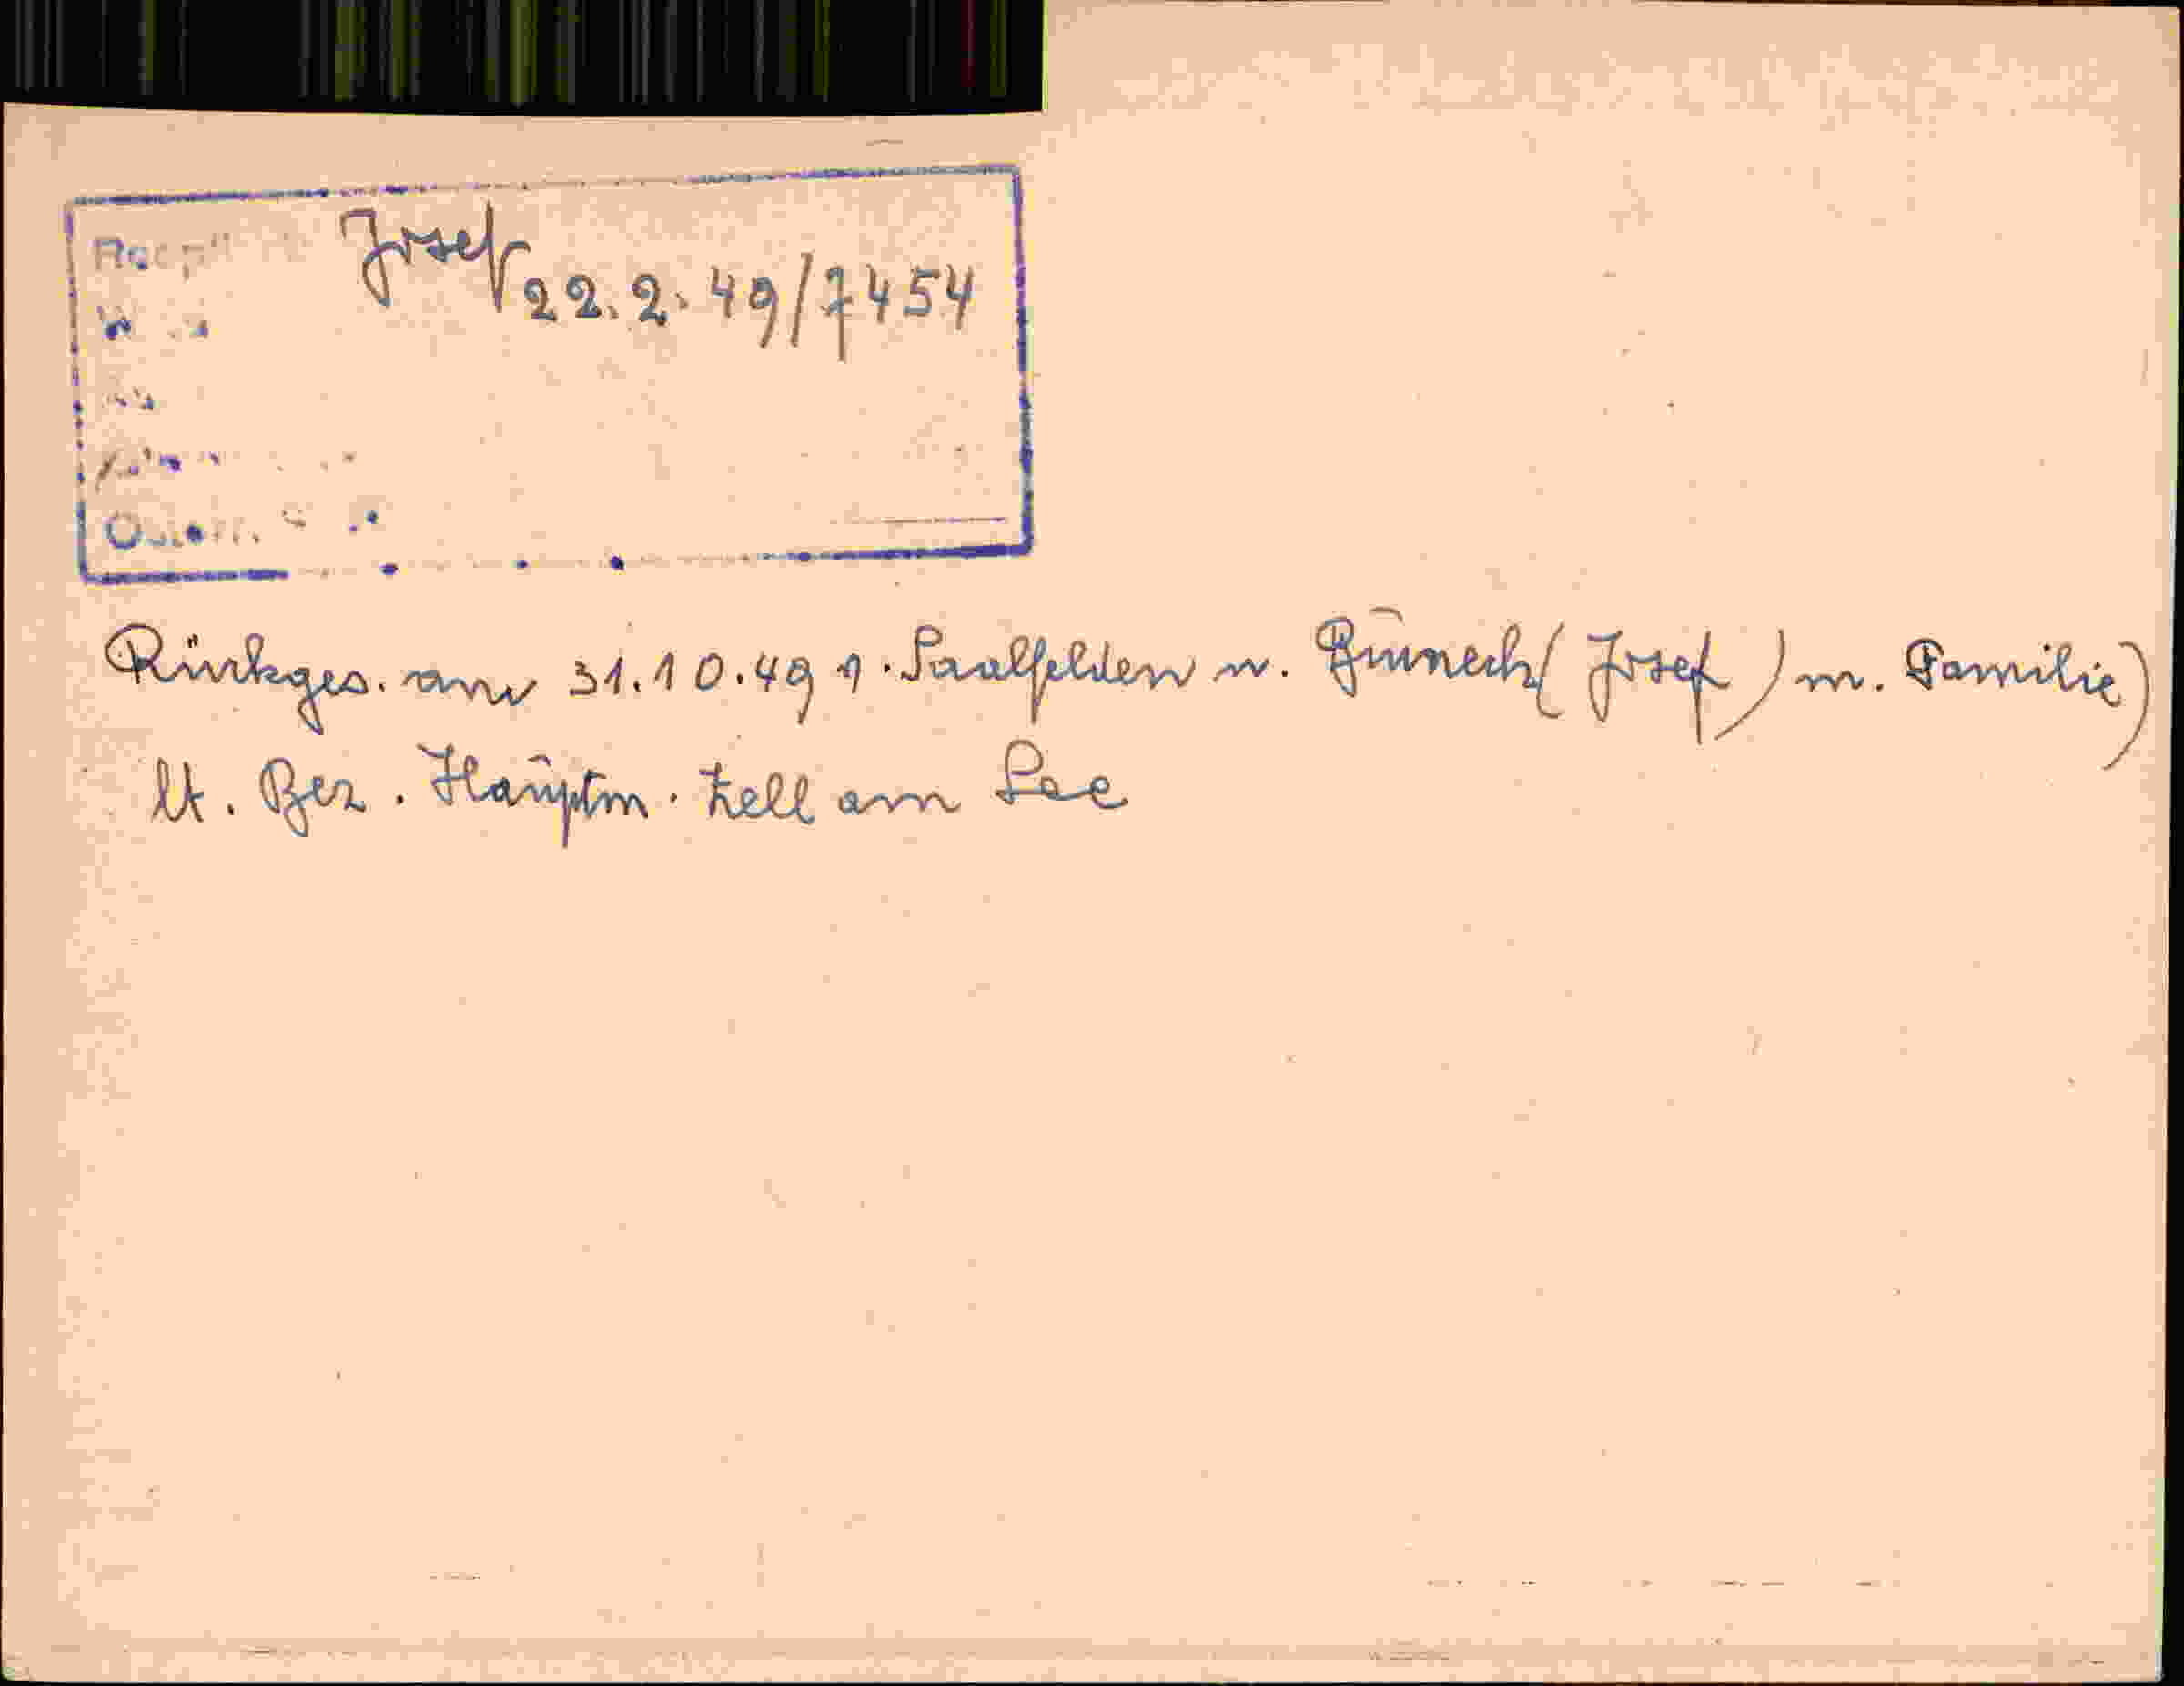 Josef
22.2.49/7454
Rückges. am 31.10.49 n. Saalfelden n. (Josef) m. Familie)
lt. Bez. Hauptm. Zell am See